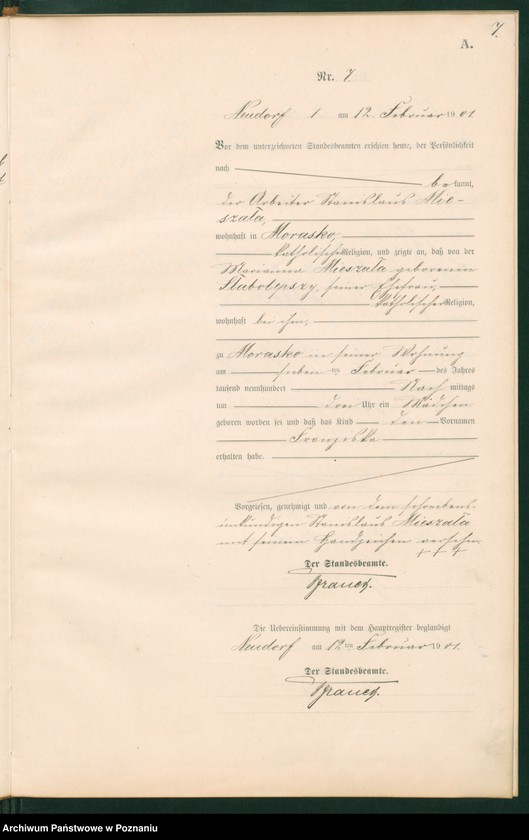 7.
A.
Nr. 7
Neudorf 1 am 12. Februar 1901.
Vor dem unterzeichneten Standesbeamten erschien heute, der Persönlichkeit
nach
bekannt,
der Arbeiter Stanislaus Mie-
szała,
wohnhaft in Morasko,
katholischer Religion, und zeigte an, daß von der
Marianna Mieszała geborenen
seiner Ehefrau,
katholischer Religion,
wohnhaft bei ihm,
zu Morasko in seiner Wohnung
am sieben ten Februar des Jahres
tausend neunhundert Nach mittags
um drei Uhr ein Mädchen
geboren worden sei und daß das Kind den Vornamen
Franziska
erhalten habe.
Vorgelesen, genehmigt und von dem schreibens-
unkundigen Stanislaus Mieszała
mit seinem Handzeichen versehen.
+++
Der Standesbeamte.
Die Uebereinstimmung mit dem Hauptregister beglaubigt
Neudorf am 12ten Februar 1901.
Der Standesbeamte.
Archiwum Państwowe w Poznaniu